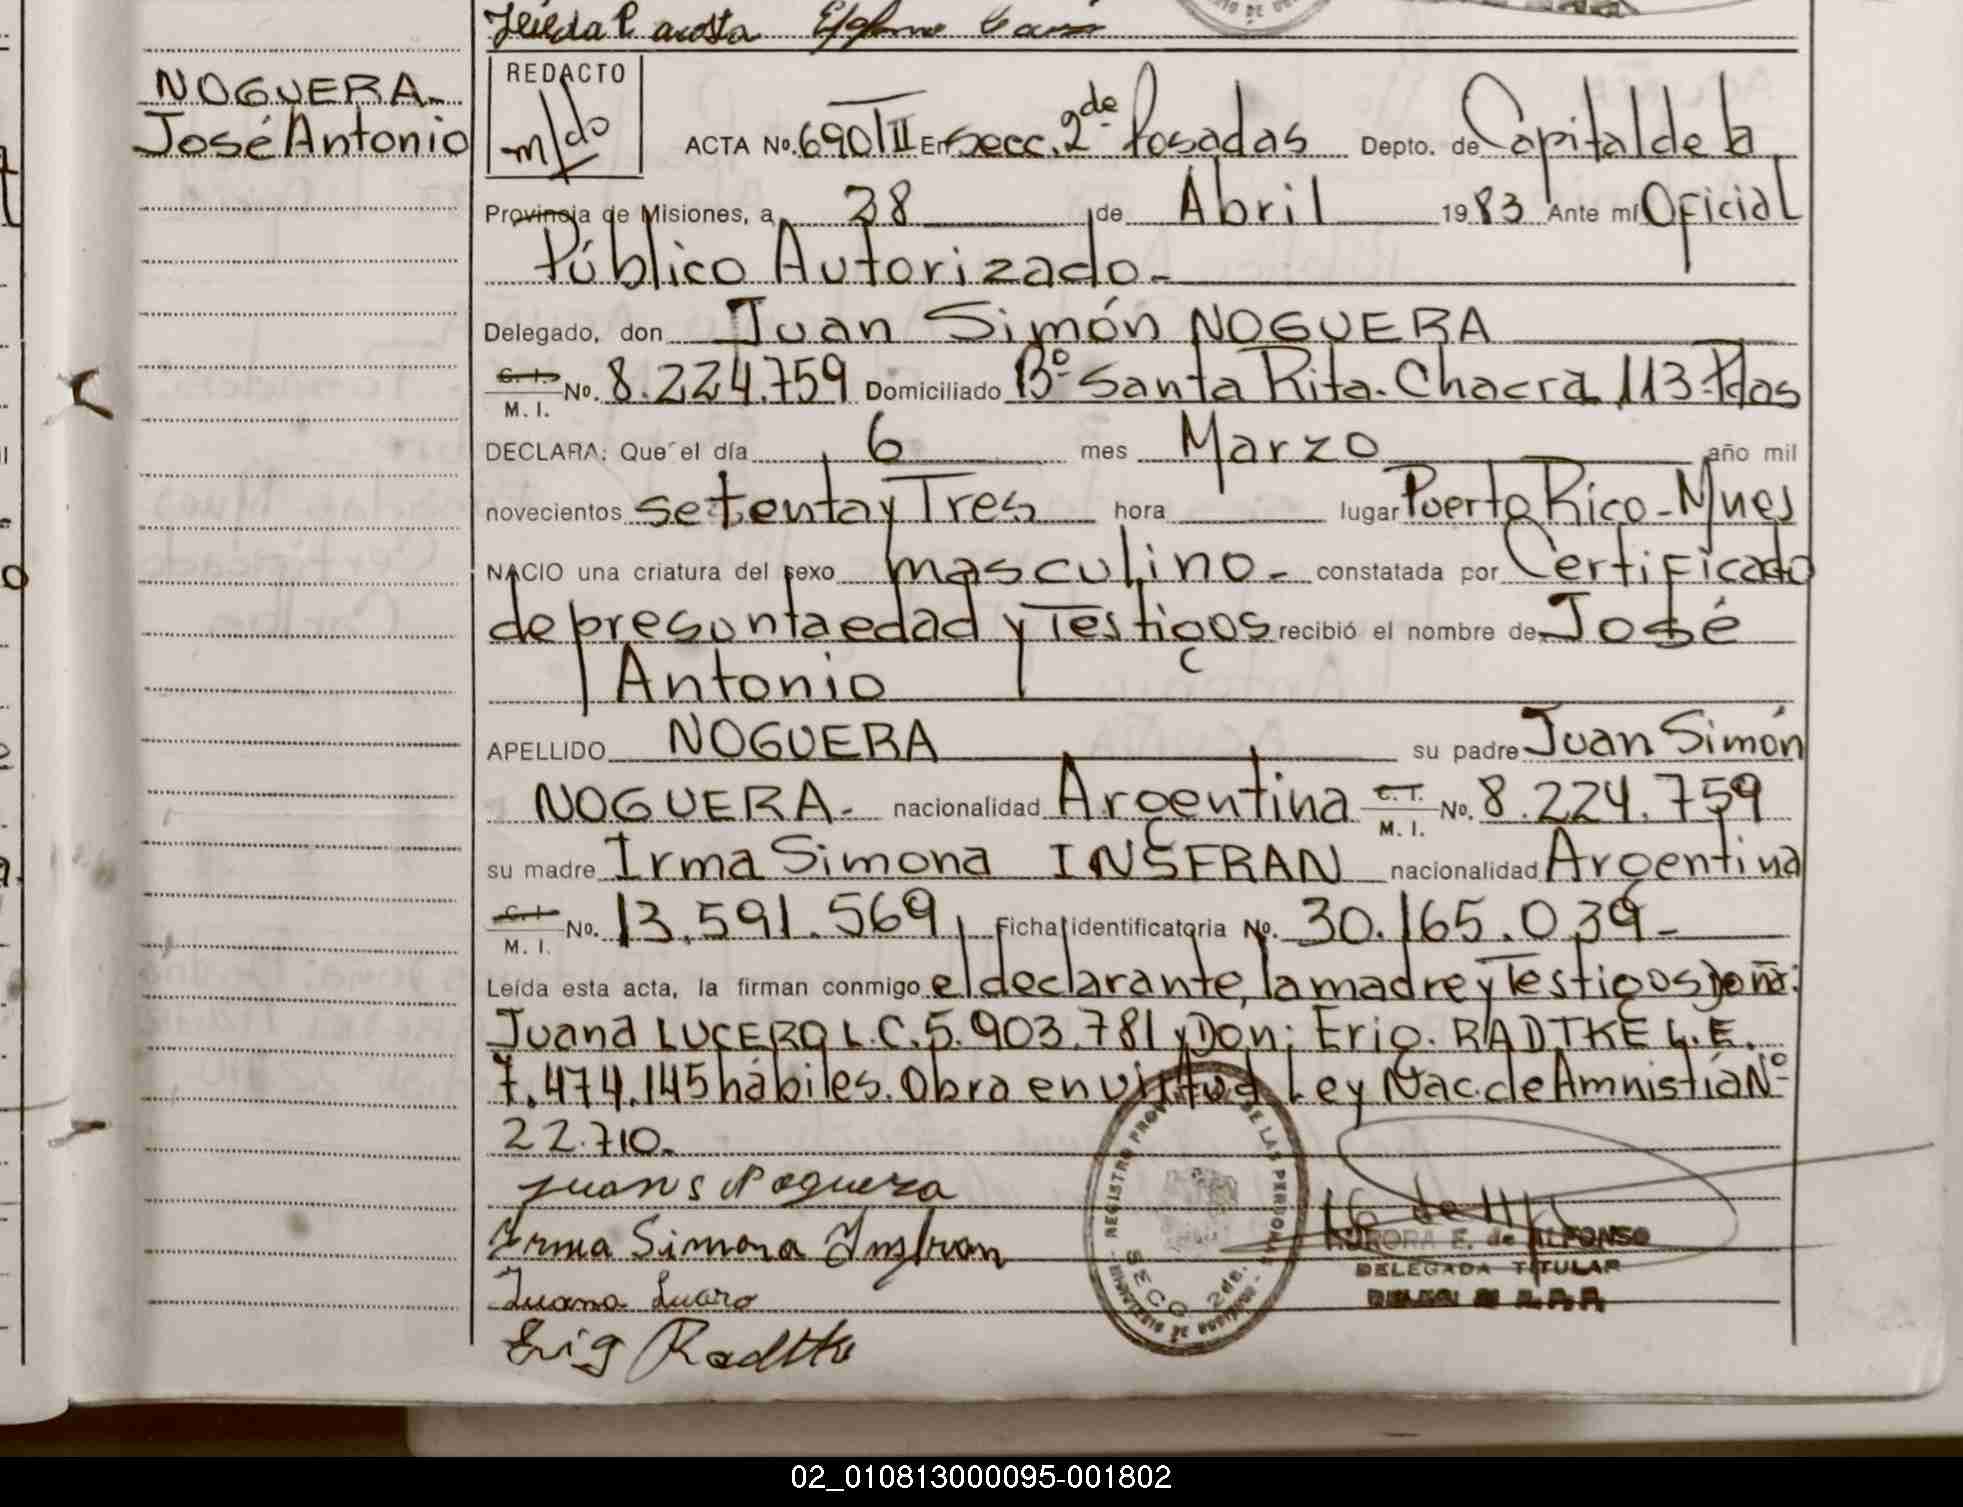 NOGUERA-
José Antonio
REDACTO
ACTA No. 690/TII En Secc. 2da Posadas Depto. de Capital de la
Provincia de Misiones, a 28 de Abril 1983 Ante mí Oficial
Público Autorizado-
Delegado, don Juan Simón NOGUERA
C. I. M. I. No. 8.224.759 Domiciliado Bº Santa Rita. Chacra 113-Pdas
DECLARA: Que el día 6 mes Marzo año mil
novecientos setenta y Tres hora lugar Puerto Rico-Mnes
NACIO una criatura del sexo masculino- constatada por Certificado
de presunta edad y Testigos recibió el nombre de José
Antonio
APELLIDO NOGUERA su padre Juan Simón
NOGUERA- nacionalidad Argentina C. I. M. I. No. 8.224.759
su madre Irma Simona INSFRAN nacionalidad Argentina
C. I. M. I. No. 13.591.569 Ficha identificatoria No. 30.165.039-
Leída esta acta, la firman conmigo el declarante, la madre y Testigos doña:
Juana LUCERO L.C.5.903.781 y Don: Erig. RADTKE L.E.
7.474.145 hábiles. Obra en virtud Ley Nac. de Amnistía Nº
22.710.
Juan S Noguera
Irma Simona Insfran
Juana Lucero
Erig Radtke
REGISTRO PROVINCIAL DE LAS PERSONAS
SECC. 2da.
AURORA E. de ALFONSO
DELEGADA TITULAR
02_010813000095-001802